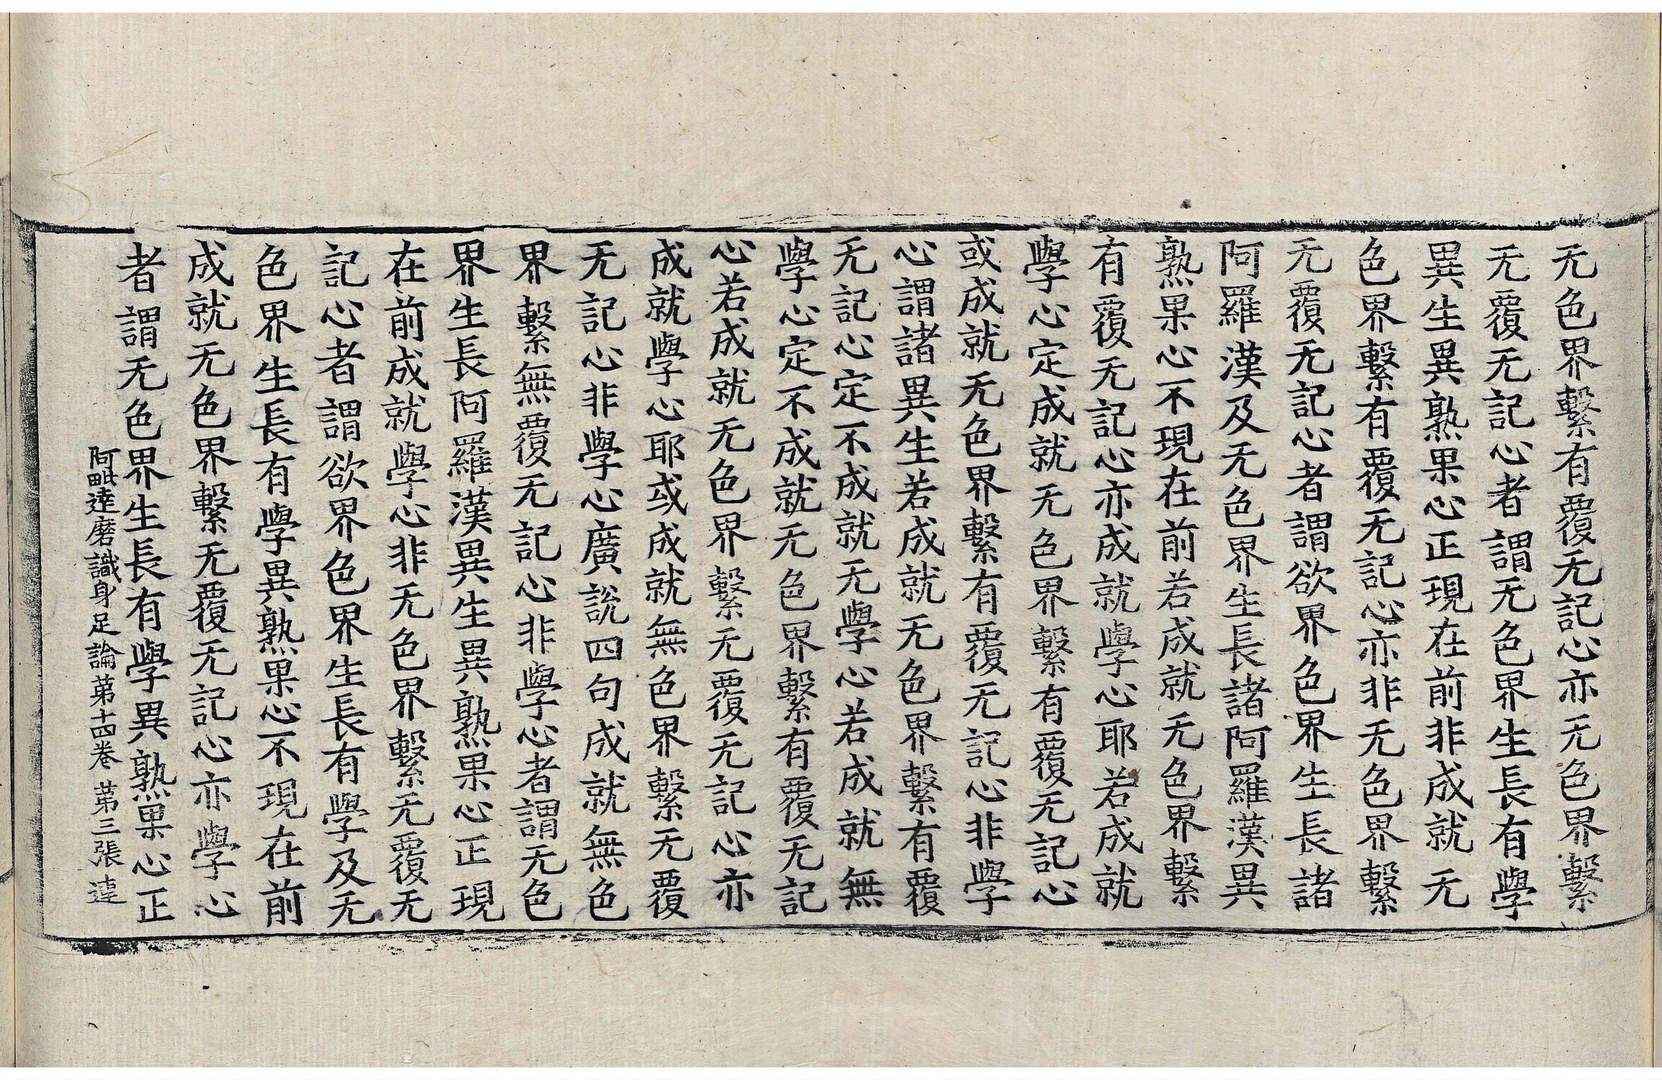 无色界繫有覆无記心亦无色界繫
无覆无記心者謂无色界生長有學
異生異熟果心正現在前非成就无
色界繫有覆无記心亦非无色界繫
无覆无記心者謂欲界色界生長諸
阿羅漢及无色界生長諸阿羅漢異
熟果心不現在前若成就无色界繫
有覆无記心亦成就學心耶若成就
學心定成就无色界繫有覆无記心
或成就无色界繫有覆无記心非學
心謂諸異生若成就无色界繫有覆
无記心定不成就无學心若成就無
學心定不成就无色界繫有覆无記
心若成就无色界繫无覆无記心亦
成就學心耶或成就無色界繫无覆
无記心非學心廣說四句成就無色
界繫無覆无記心非學心者謂无色
界生長阿羅漢異生異熟果心正現
在前成就學心非无色界繫无覆无
記心者謂欲界色界生長有學及无
色界生長有學異熟果心不現在前
成就无色界繫无覆无記心亦學心
者謂无色界生長有學異熟果心正
阿毗達磨識身足論第十四卷 第三張 達